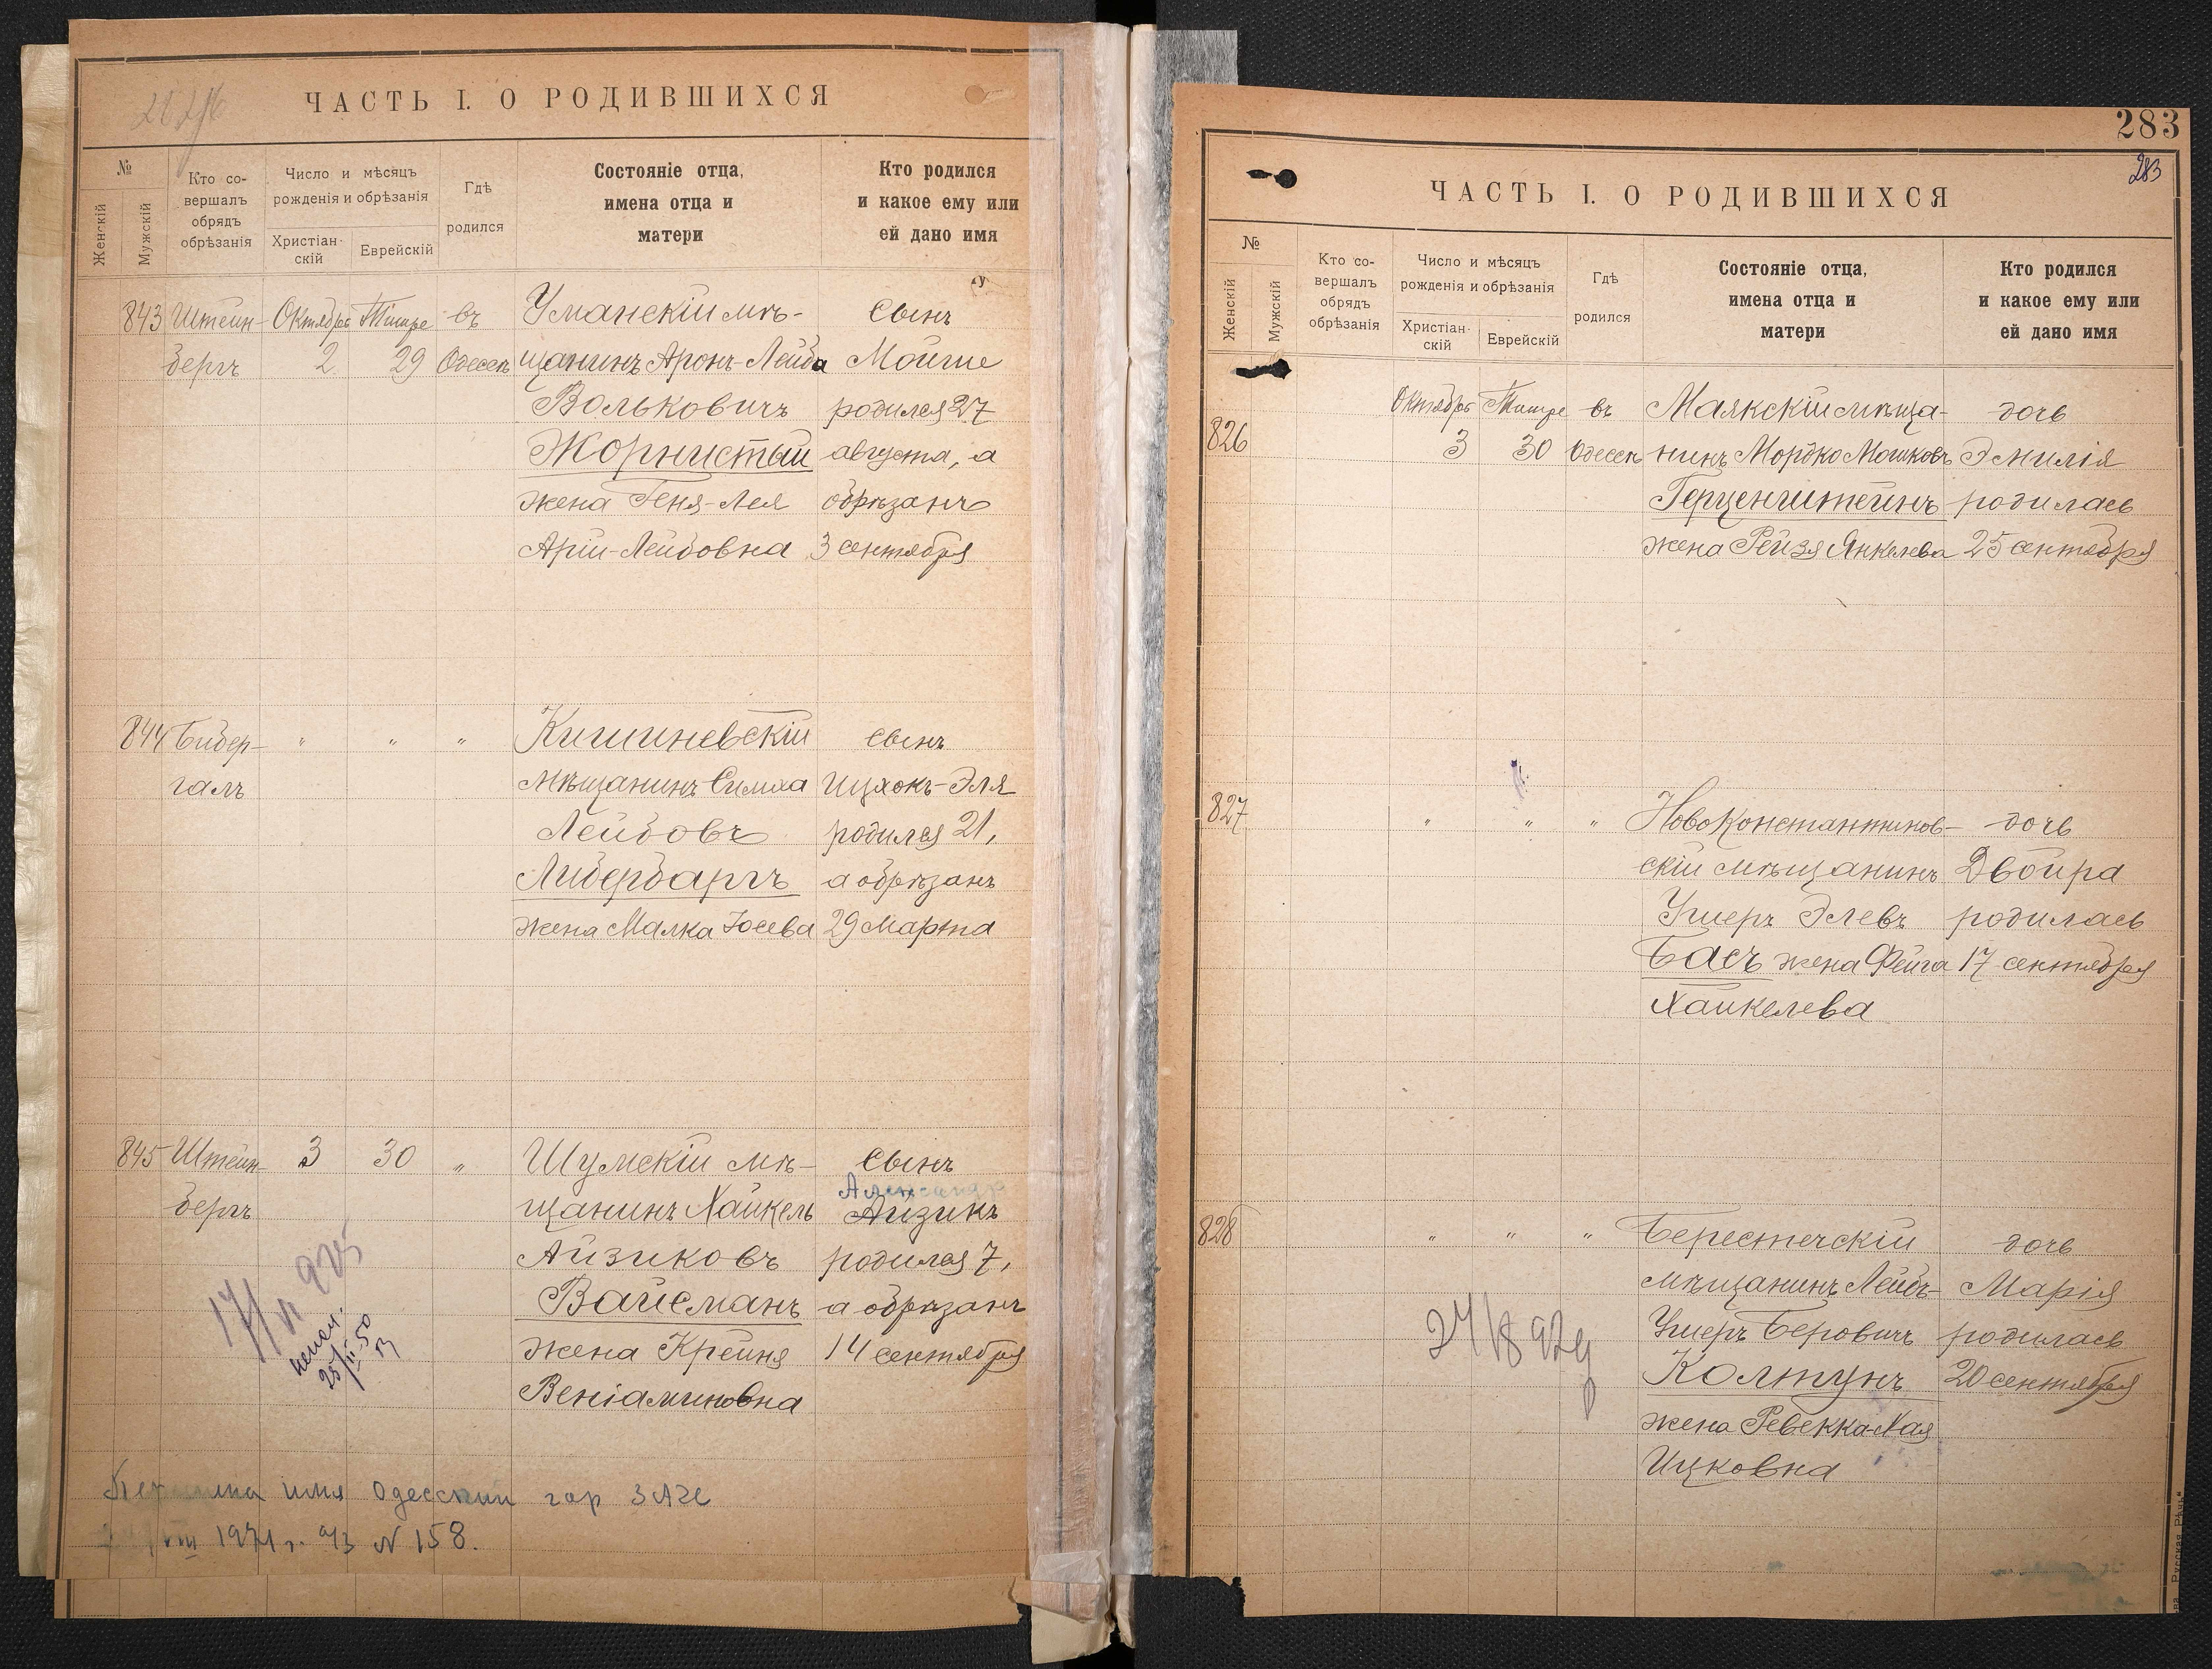 ЧАСТЬ I. О РОДИВШИХСЯ
№
Женскій
Мужскій
Кто со-
вершалъ
обрядъ
обрѣзанія
Число и мѣсяцъ
рожденія и обрѣзанія
Христіан-
скій
Еврейскій
Гдѣ
родился
Состояніе отца,
имена отца и
матери
Кто родился
и какое ему или
ей дано имя
843 Штейн- Октября Тишре въ Уманскій мѣ- сынъ
бергъ 2 29 Одессѣ щанинъ Аронъ-Лейба Мойше
Вольковичъ родился 27
Жорнистый августа, а
жена Геня-Лея обрѣзанъ
Арій-Лейбовна 3 сентября
844 Бибер- " " " Кишиневскій сынъ
галъ мѣщанинъ Симха Ицхокъ-Эля
Лейбовъ родился 21,
Либербаргъ а обрѣзанъ
жена Малка Іосева 29 Марта
845 Штейн- 3 30 " Шумскій мѣ- сынъ
Александр
бергъ щанинъ Хайкель Айзикъ
Айзиковъ родился 7,
Вайсманъ а обрѣзанъ
жена Крейня 14 сентября
Веніаминовна
17/VI 925
25/II-50
имя Одесский гор ЗАГС
VIII 1971 г. а/з N 158.
283
283
ЧАСТЬ I. О РОДИВШИХСЯ
№
Женскій
Мужскій
Кто со-
вершалъ
обрядъ
обрѣзанія
Число и мѣсяцъ
рожденія и обрѣзанія
Христіан-
скій
Еврейскій
Гдѣ
родился
Состояніе отца,
имена отца и
матери
Кто родился
и какое ему или
ей дано имя
Октября Тишре въ Маякскій мѣща- дочь
826 3 30 Одессѣ нинъ Мордко Мошковъ Эмилія
Герценштейнъ родилась
жена Рейзя Янкелева 25 сентября
827 " " " Новоконстантинов- дочь
скій мѣщанинъ Двойра
Ушеръ Элевъ родилась
Басъ жена Фейга 17 сентября
Хайкелева
828 " " " Берестечскій дочь
мѣщанинъ Лейбъ- Марія
Ушеръ Беровичъ родилась
Колтунъ 20 сентября
жена Ревекка-Хая
Ицковна
Русская Рѣчь"